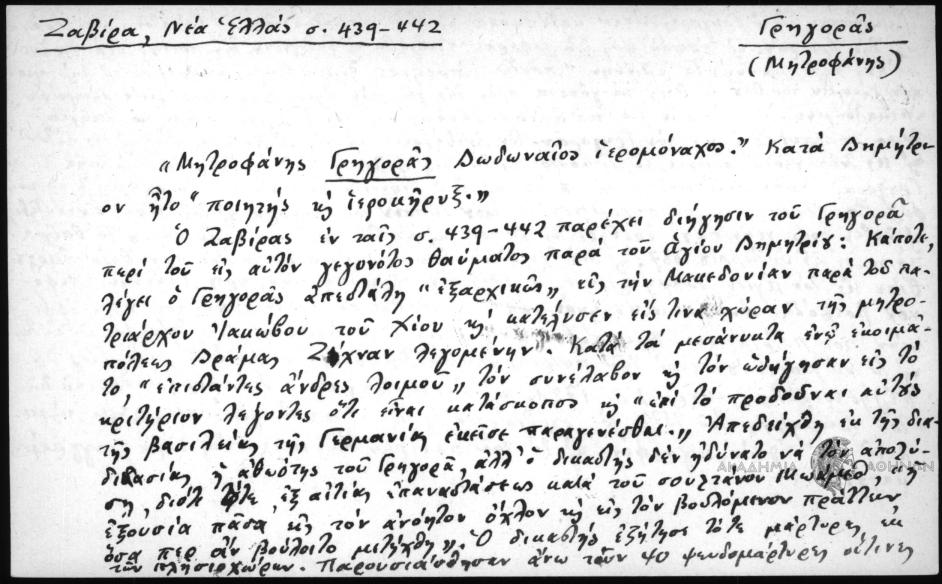 Ζαβίρα, Νέα Ἑλλάς σ. 439-442
Γρηγορᾶς
(Μητροφάνης)
«Μητροφάνης Γρηγορᾶς Δωδωναῖος ἱερομόναχος." Κατὰ Δημήτρι-
ον ἦτο "ποιητής κ̣ ἱεροκῆρυξ.»
Ὁ Ζαβίρας ἐν ταῖς σ. 439-442 παρέχει διήγησιν τοῦ Γρηγορᾶ
περί τοῦ εἰς αὐτόν γεγονότος θαύματος παρά τοῦ ἁγίου Δημητρίου. Κάποτε,
λέγει ὁ Γρηγορᾶς ἀπεστάλη "ἐξαρχικῶς„ εἰς τήν Μακεδονίαν παρά τοῦ πα-
τριάρχου Ἰακώβου τοῦ Χίου κ̣ κατέλυσεν εἰς τινα χώραν τῆς μητρο-
πόλεως Δράμας Ζίχναν λεγομένην. Κατά τά μεσάνυκτα ἐνῷ ἐκοιμᾶ-
το, "ἐπιστάντες ἄνδρες λοιμοί„ τόν συνέλαβον κ̣ τόν ὡδήγησαν εἰς τό
κριτήριον λέγοντες ὅτι εἶναι κατάσκοπος κ̣ "ἐπί τό προδοῦναι αὐτούς
τῆς βασιλείας τῆς Γερμανίας ἐκεῖσε παραγενέσθαι.„ Ἀπεδείχθη ἐκ τῆς δια-
δικασίας ἡ ἀθωότης τοῦ Γρηγορᾶ, ἀλλ' ὁ δικαστής δέν ἠδύνατο νά τόν ἀπολύ-
σῃ, διότι τότε, ἐξ αἰτίας ἐπαναστάσεως κατά τοῦ σουλτάνου "ἡ
ἐξουσία πᾶσα εἰς τόν ἀνόητον ὄχλον κ̣ εἰς τόν βουλόμενον πράττειν
ὅσα περ ἄν βούλοιτο μετήχθη„. Ὁ δικαστής ἐζήτησε τότε μάρτυρας ἐκ
τῶν πλησιοχώρων. Παρουσιάσθησαν ἄνω τῶν 40 ψευδομάρτυρες οἵτινες
ΑΚΑΔΗΜΙΑ ΑΘΗΝΩΝ